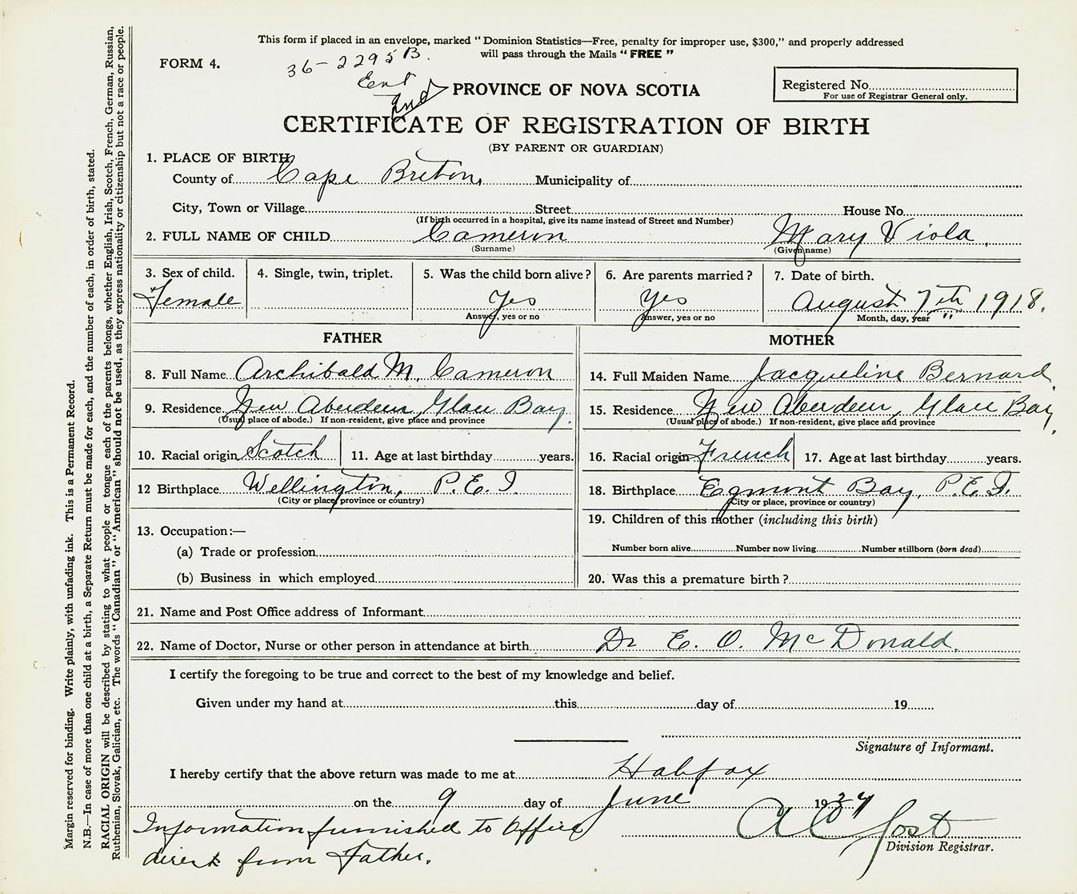 This form if placed in an envelope, marked "Dominion Statistics—Free, penalty for improper use, $300," and properly addressed
will pass through the Mails "FREE"
FORM 4.
36-2295B.
PROVINCE OF NOVA SCOTIA
Registered No.
For use of Registrar General only.
CERTIFICATE OF REGISTRATION OF BIRTH
(BY PARENT OR GUARDIAN)
1. PLACE OF BIRTH
County of Cape Breton, Municipality of
City, Town or Village Street House No.
(If birth occurred in a hospital, give its name instead of Street and Number)
2. FULL NAME OF CHILD Cameron Mary Viola.
(Surname) (Given name)
3. Sex of child. 4. Single, twin, triplet. 5. Was the child born alive? 6. Are parents married? 7. Date of birth.
Female Yes Yes August 7th 1918.
Answer, yes or no Answer, yes or no Month, day, year
FATHER
8. Full Name Archibald M. Cameron
9. Residence New Aberdeen, Glace Bay.
(Usual place of abode.) If non-resident, give place and province
10. Racial origin Scotch 11. Age at last birthday years.
12 Birthplace Wellington, P.E.I.
(City or place, province or country)
13. Occupation:—
(a) Trade or profession
(b) Business in which employed
MOTHER
14. Full Maiden Name Jacqueline Bernard,
15. Residence New Aberdeen, Glace Bay,
(Usual place of abode.) If non-resident, give place and province
16. Racial origin French 17. Age at last birthday years.
18. Birthplace Egmont Bay, P.E.I.
(City or place, province or country)
19. Children of this mother (including this birth)
Number born alive Number now living Number stillborn (born dead)
20. Was this a premature birth?
21. Name and Post Office address of Informant
22. Name of Doctor, Nurse or other person in attendance at birth Dr E. O. McDonald.
I certify the foregoing to be true and correct to the best of my knowledge and belief.
Given under my hand at this day of 19
Signature of Informant.
I hereby certify that the above return was made to me at Halifax
on the 9 day of June 19
Information furnished to Office
direct from Father.
A C Jost
Division Registrar.
Margin reserved for binding. Write plainly, with unfading ink. This is a Permanent Record.
N.B.—In case of more than one child at a birth, a Separate Return must be made for each, and the number of each, in order of birth, stated.
RACIAL ORIGIN will be described by stating to what people or tongue each of the parents belongs, whether English, Irish, Scotch, French, German, Russian,
Ruthenian, Slovak, Galician, etc. The words "Canadian" or "American" should not be used, as they express nationality or citizenship but not a race or people.